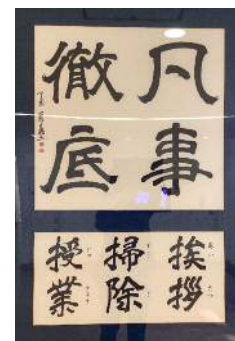 凡事
徹底
挨拶
掃除
授業